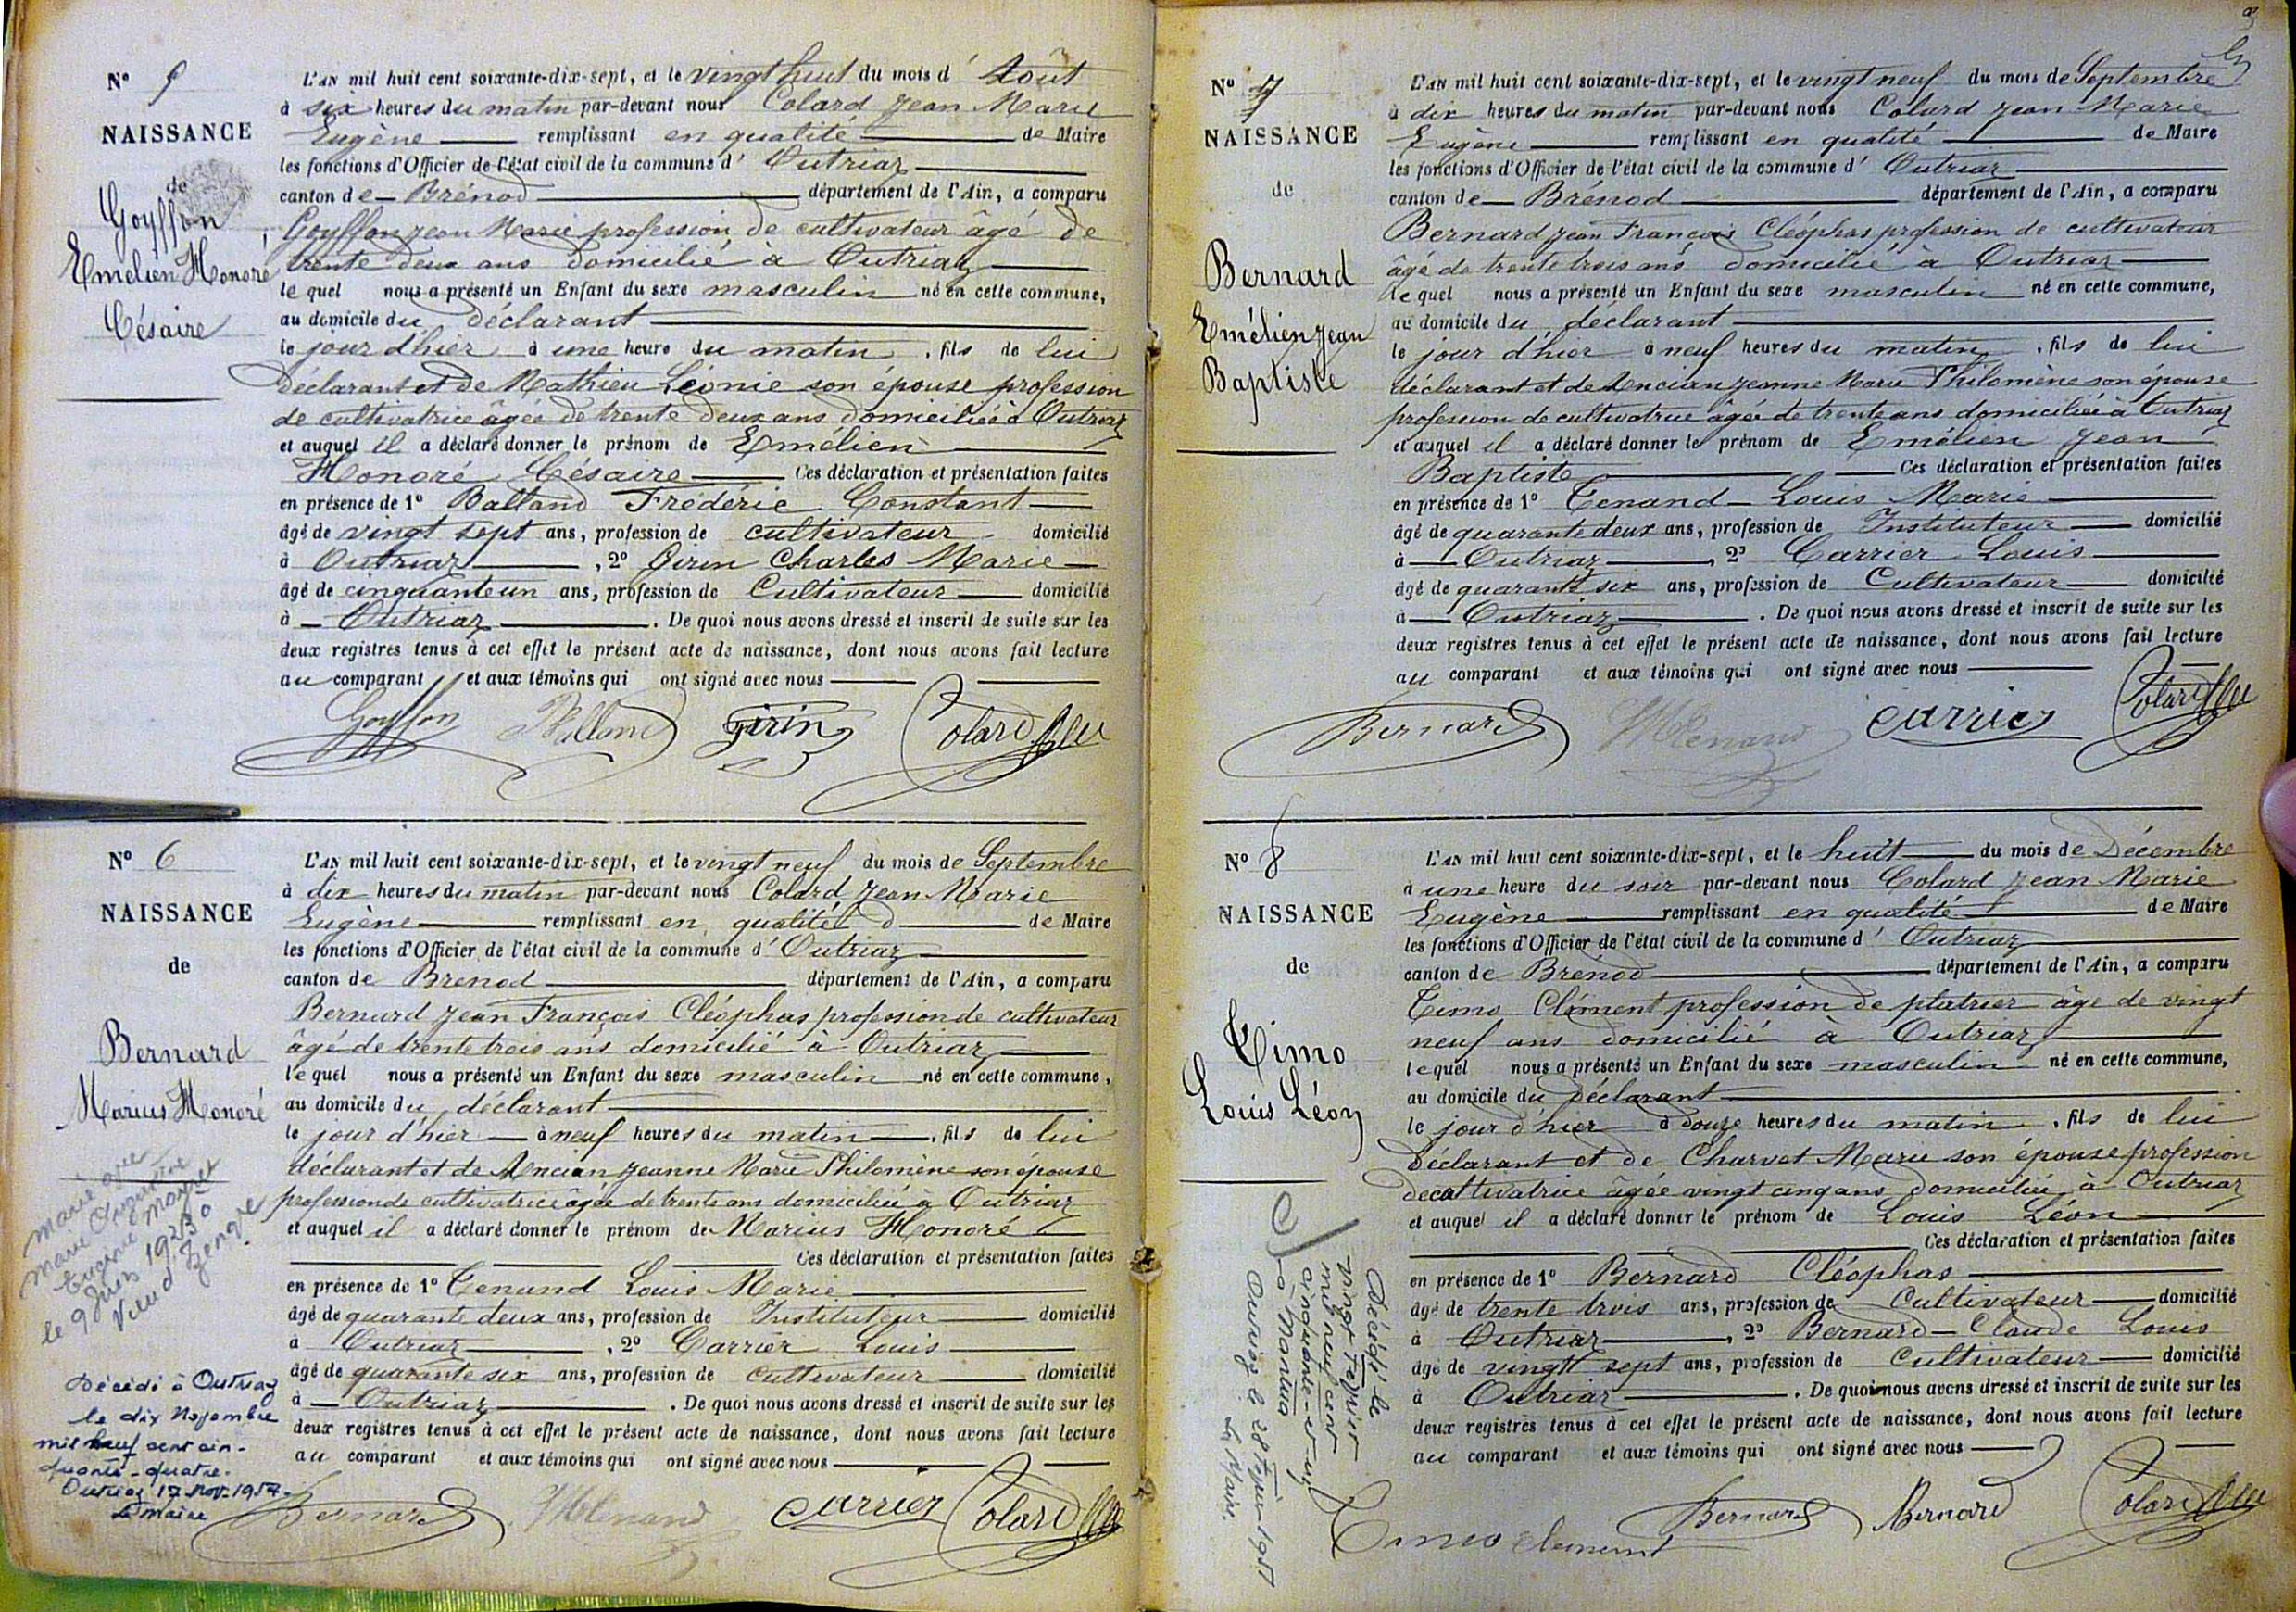 Nº 5
NAISSANCE
de
Goyffon
Emélien Honoré
Césaire
L'AN mil huit cent soixante-dix-sept, et le vingt huit du mois d' Août
à six heures du matin par-devant nous Colard Jean Marie
Eugène remplissant en qualité de Maire
les fonctions d'Officier de l'état civil de la commune d' Outriaz
canton de Brénod département de l'Ain, a comparu
Goyffon Jean Marie profession de cultivateur âgé de
trente deux ans domicilié à Outriaz
lequel nous a présenté un Enfant du sexe masculin né en cette commune,
au domicile du déclarant
le jour d'hier à une heure du matin, fils de lui
déclarant et de Mathieu Léonie son épouse profession
de cultivatrice âgée de trente deux ans domiciliée à Outriaz
et auquel il a déclaré donner le prénom de Emélien
Honoré Césaire Ces déclaration et présentation faites
en présence de 1º Balland Frédéric Constant
âgé de vingt sept ans, profession de cultivateur domicilié
à Outriaz, 2º Girin Charles Marie
âgé de cinquante un ans, profession de Cultivateur domicilié
à Outriaz. De quoi nous avons dressé et inscrit de suite sur les
deux registres tenus à cet effet le présent acte de naissance, dont nous avons fait lecture
au comparant et aux témoins qui ont signé avec nous
Goyffon Balland Girin Colard
Nº 6
NAISSANCE
de
Bernard
Marius Honoré
Marié avec
Marie
Eugénie
le 9 Juin 19
Vieu d'Izenave
Décédé à Outriaz
le dix Novembre
mil neuf cent cin-
quante-quatre.
Outriaz 17 Nov. 1954.
Le maire
L'AN mil huit cent soixante-dix-sept, et le vingt neuf du mois de Septembre
à dix heures du matin par-devant nous Colard Jean Marie
Eugène remplissant en qualité d de Maire
les fonctions d'Officier de l'état civil de la commune d' Outriaz
canton de Brenod département de l'Ain, a comparu
Bernard Jean François Cléophas profession de cultivateur
âgé de trente trois ans domicilié à Outriaz
lequel nous a présenté un Enfant du sexe masculin né en cette commune,
au domicile du déclarant
le jour d'hier à neuf heures du matin, fils de lui
déclarant et de Ancian Jeanne Marie Philomène son épouse
profession de cultivatrice âgée de trente ans domiciliée à Outriaz
et auquel il a déclaré donner le prénom de Marius Honoré
Ces déclaration et présentation faites
en présence de 1º Tenand Louis Marie
âgé de quarante deux ans, profession de Instituteur domicilié
à Outriaz, 2º Carrier Louis
âgé de quarante six ans, profession de cultivateur domicilié
à Outriaz. De quoi nous avons dressé et inscrit de suite sur les
deux registres tenus à cet effet le présent acte de naissance, dont nous avons fait lecture
au comparant et aux témoins qui ont signé avec nous
Bernard Tenand Carrier Colard
Nº 7
NAISSANCE
de
Bernard
Emélien Jean
Baptiste
L'AN mil huit cent soixante-dix-sept, et le vingt neuf du mois de Septembre
à dix heures du matin par-devant nous Colard Jean Marie
Eugène remplissant en qualité de Maire
les fonctions d'Officier de l'état civil de la commune d' Outriaz
canton de Brénod département de l'Ain, a comparu
Bernard Jean François Cléophas profession de cultivateur
âgé de trente trois ans domicilié à Outriaz
lequel nous a présenté un Enfant du sexe masculin né en cette commune,
au domicile du déclarant
le jour d'hier à neuf heures du matin, fils de lui
déclarant et de Ancian Jeanne Marie Philomène son épouse
profession de cultivatrice âgée de trente ans domiciliée à Outriaz
et auquel il a déclaré donner le prénom de Emélien Jean
Baptiste Ces déclaration et présentation faites
en présence de 1º Tenand Louis Marie
âgé de quarante deux ans, profession de Instituteur domicilié
à Outriaz, 2º Carrier Louis
âgé de quarante six ans, profession de Cultivateur domicilié
à Outriaz. De quoi nous avons dressé et inscrit de suite sur les
deux registres tenus à cet effet le présent acte de naissance, dont nous avons fait lecture
au comparant et aux témoins qui ont signé avec nous
Bernard Tenand Carrier Colard
Nº 8
NAISSANCE
de
Timo
Louis Léon
Décédé le
vingt février
mil neuf cent
cinquante-et-un
à Nantua
Outriaz le 28 février 1951
Le Maire.
L'AN mil huit cent soixante-dix-sept, et le huit du mois de Décembre
à une heure du soir par-devant nous Colard Jean Marie
Eugène remplissant en qualité de Maire
les fonctions d'Officier de l'état civil de la commune d' Outriaz
canton de Brénod département de l'Ain, a comparu
Timo Clément profession de platrier âgé de vingt
neuf ans domicilié à Outriaz
lequel nous a présenté un Enfant du sexe masculin né en cette commune,
au domicile du déclarant
le jour d'hier à douze heures du matin, fils de lui
Déclarant et de Charvet Marie son épouse profession
de cultivatrice âgée vingt cinq ans domiciliée à Outriaz
et auquel il a déclaré donner le prénom de Louis Léon
Ces déclaration et présentation faites
en présence de 1º Bernard Cléophas
âgé de trente trois ans, profession de Cultivateur domicilié
à Outriaz, 2º Bernard Claude Louis
âgé de vingt sept ans, profession de Cultivateur domicilié
à Outriaz. De quoi nous avons dressé et inscrit de suite sur les
deux registres tenus à cet effet le présent acte de naissance, dont nous avons fait lecture
au comparant et aux témoins qui ont signé avec nous
Timo clement Bernard Bernard Colard